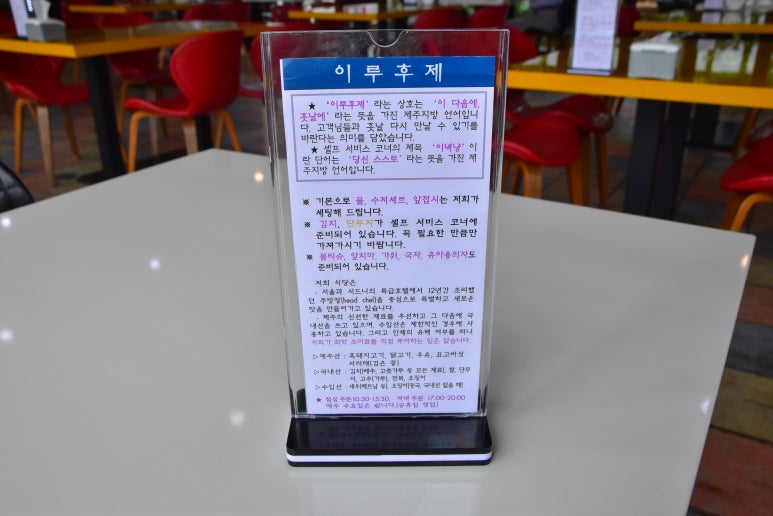 이루후제
★ '이루후제' 라는 상호는 '이 다음에,
훗날에' 라는 뜻을 가진 제주지방 언어입니
다. 고객님들과 훗날 다시 만날 수 있기를
바란다는 의미를 담았습니다.
★ 셀프 서비스 코너의 제목 '이녁냥' 이
란 단어는 '당신 스스로' 라는 뜻을 가진 제
주지방 언어입니다.
※ 기본으로 물, 수저세트, 앞접시는 저희가
세팅해 드립니다.
※ 김치, 단무지가 셀프 서비스 코너에
준비되어 있습니다. 꼭 필요한 만큼만
가져가시기 바랍니다.
※ 물티슈, 앞치마, 가위, 국자, 유아용의자도
준비되어 있습니다.
저희 식당은
- 서울과 시드니의 특급호텔에서 12년간 조리했
던 주방장(head chef)을 중심으로 특별하고 새로운
맛을 만들어가고 있습니다.
- 제주의 신선한 재료를 우선하고 그 다음에 국
내산을 쓰고 있으며, 수입산은 제한적인 경우에 사
용하고 있습니다. 그리고 인체의 유해 여부를 떠나
저희가 화학 조미료를 직접 투여하는 일은 없습니다.
▷제주산 : 흑돼지고기, 닭고기, 우유, 표고버섯
서리태(검은 콩)
▷국내산 : 김치(배추, 고춧가루 등 모든 재료), 쌀, 단무
지, 고추(가루), 전복, 오징어
▷수입산 : 새우(베트남 등), 오징어(중국, 국내산 없을 때)
★ 점심 주문:10:30-15:30, 저녁 주문: 17:00-20:00
매주 수요일은 쉽니다.(공휴일 영업)